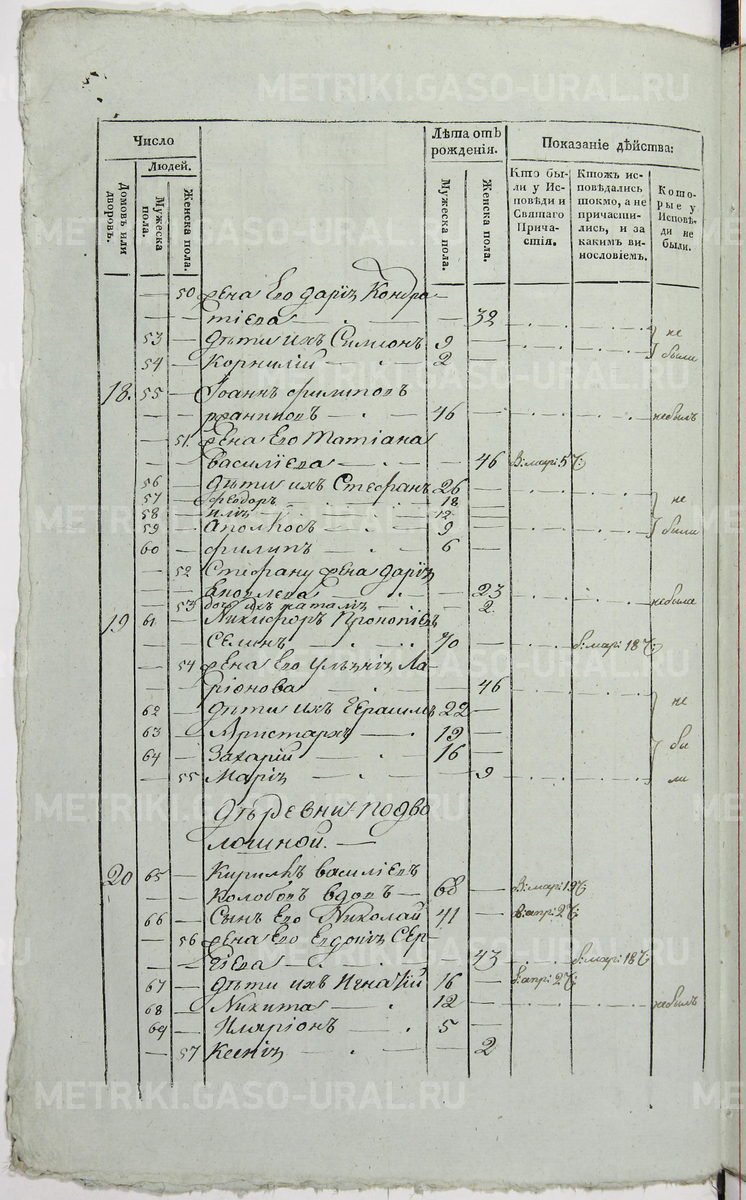 Число
Людей.
Домовъ или дворовъ.
Мужеска пола.
Женска пола.
Лѣта отъ рожденія.
Мужеска пола.
Женска пола.
Показаніе дѣйства:
Кто были у Исповѣди и Святаго Причастія.
Ктожъ исповѣдались токмо, а не причастились, и за какимъ винословіемъ.
Которые у Исповѣди не были.
50 жена Его дарія Кондра
тіева 32
53 дѣти ихъ Симионъ 9 не
54 Корнилій 2 были
18. 55 Іоаннъ филипов
46 небылъ
51 жена Его Татіана
Василіева 46 В: мар: 5
56 дѣти ихъ Стефанъ 26
57 феодоръ 18 не
58 илія 12
59 Аполлосъ 9 были
60 филипъ 6
52 Стефану жена дарія
23 небыла
53 дочь ихъ наталія 2
19 61 Никифоръ Прокопіевъ
Селинъ 70 в: мар: 18
54 жена Его Ульянія Ла
ріонова 46
62 дѣти ихъ Герасимъ 22 не
63 Аристархъ 19
64 Захарій 16 бы
55 Марія 9 ли
дѣревни подво
лошной.
20 65 Кирилъ василіевъ
Колобовъ вдовъ 68 В: мар: 19
66 Сынъ Его Николай 41 в: апр: 2
56 жена Его Евдокія Сер
гіева 43 в: мар: 18
67 дѣти ихъ Игнатій 16 в: апр: 2
68 Никита 12 небылъ
69 Иларіонъ 5
57 Ксенія 2
METRIKI.GASO-URAL.RU